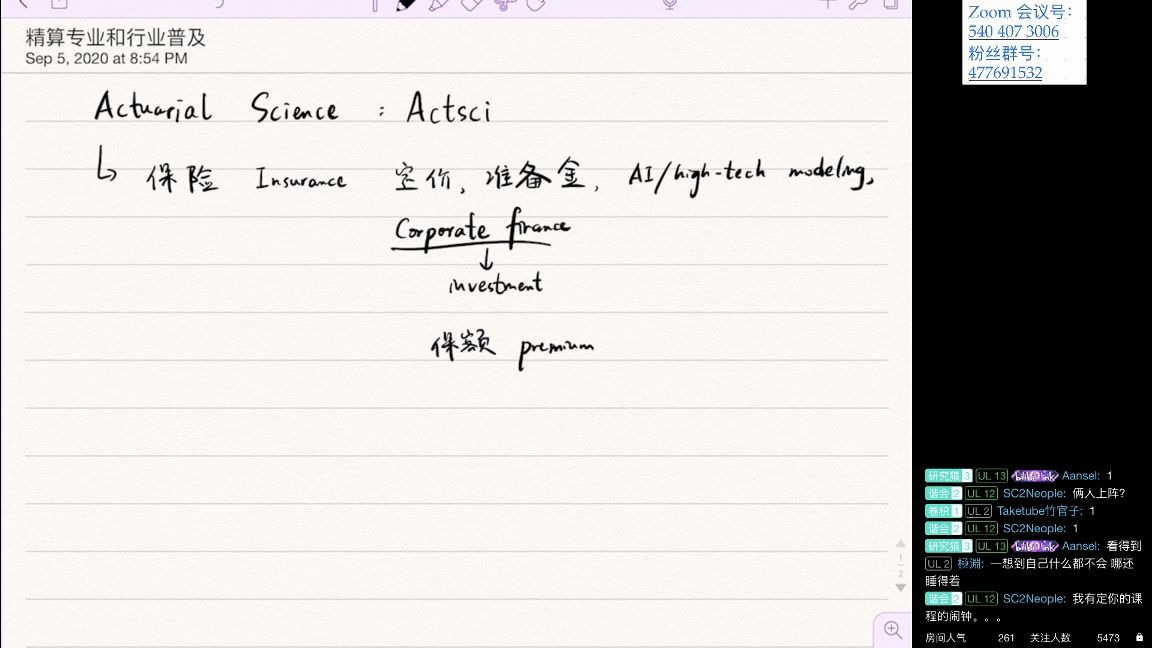 精算专业和行业普及
Sep 5, 2020 at 8:54 PM
Actuarial Science : Actsci
保险 Insurance 定价, 准备金, AI/high-tech modeling,
Corporate finance
investment
保额 premium
1
2
Zoom 会议号:
540 407 3006
粉丝群号:
477691532
研究猿 3 UL 13 Aansel: 1
谐会 2 UL 12 SC2Neople: 俩人上阵?
卷积 1 UL 2 Taketube竹官子: 1
谐会 2 UL 12 SC2Neople: 1
研究猿 3 UL 13 Aansel: 看得到
UL 2 極淵: 一想到自己什么都不会 哪还
睡得着
谐会 2 UL 12 SC2Neople: 我有定你的课
程的闹钟。。。
房间人气 261 关注人数 5473